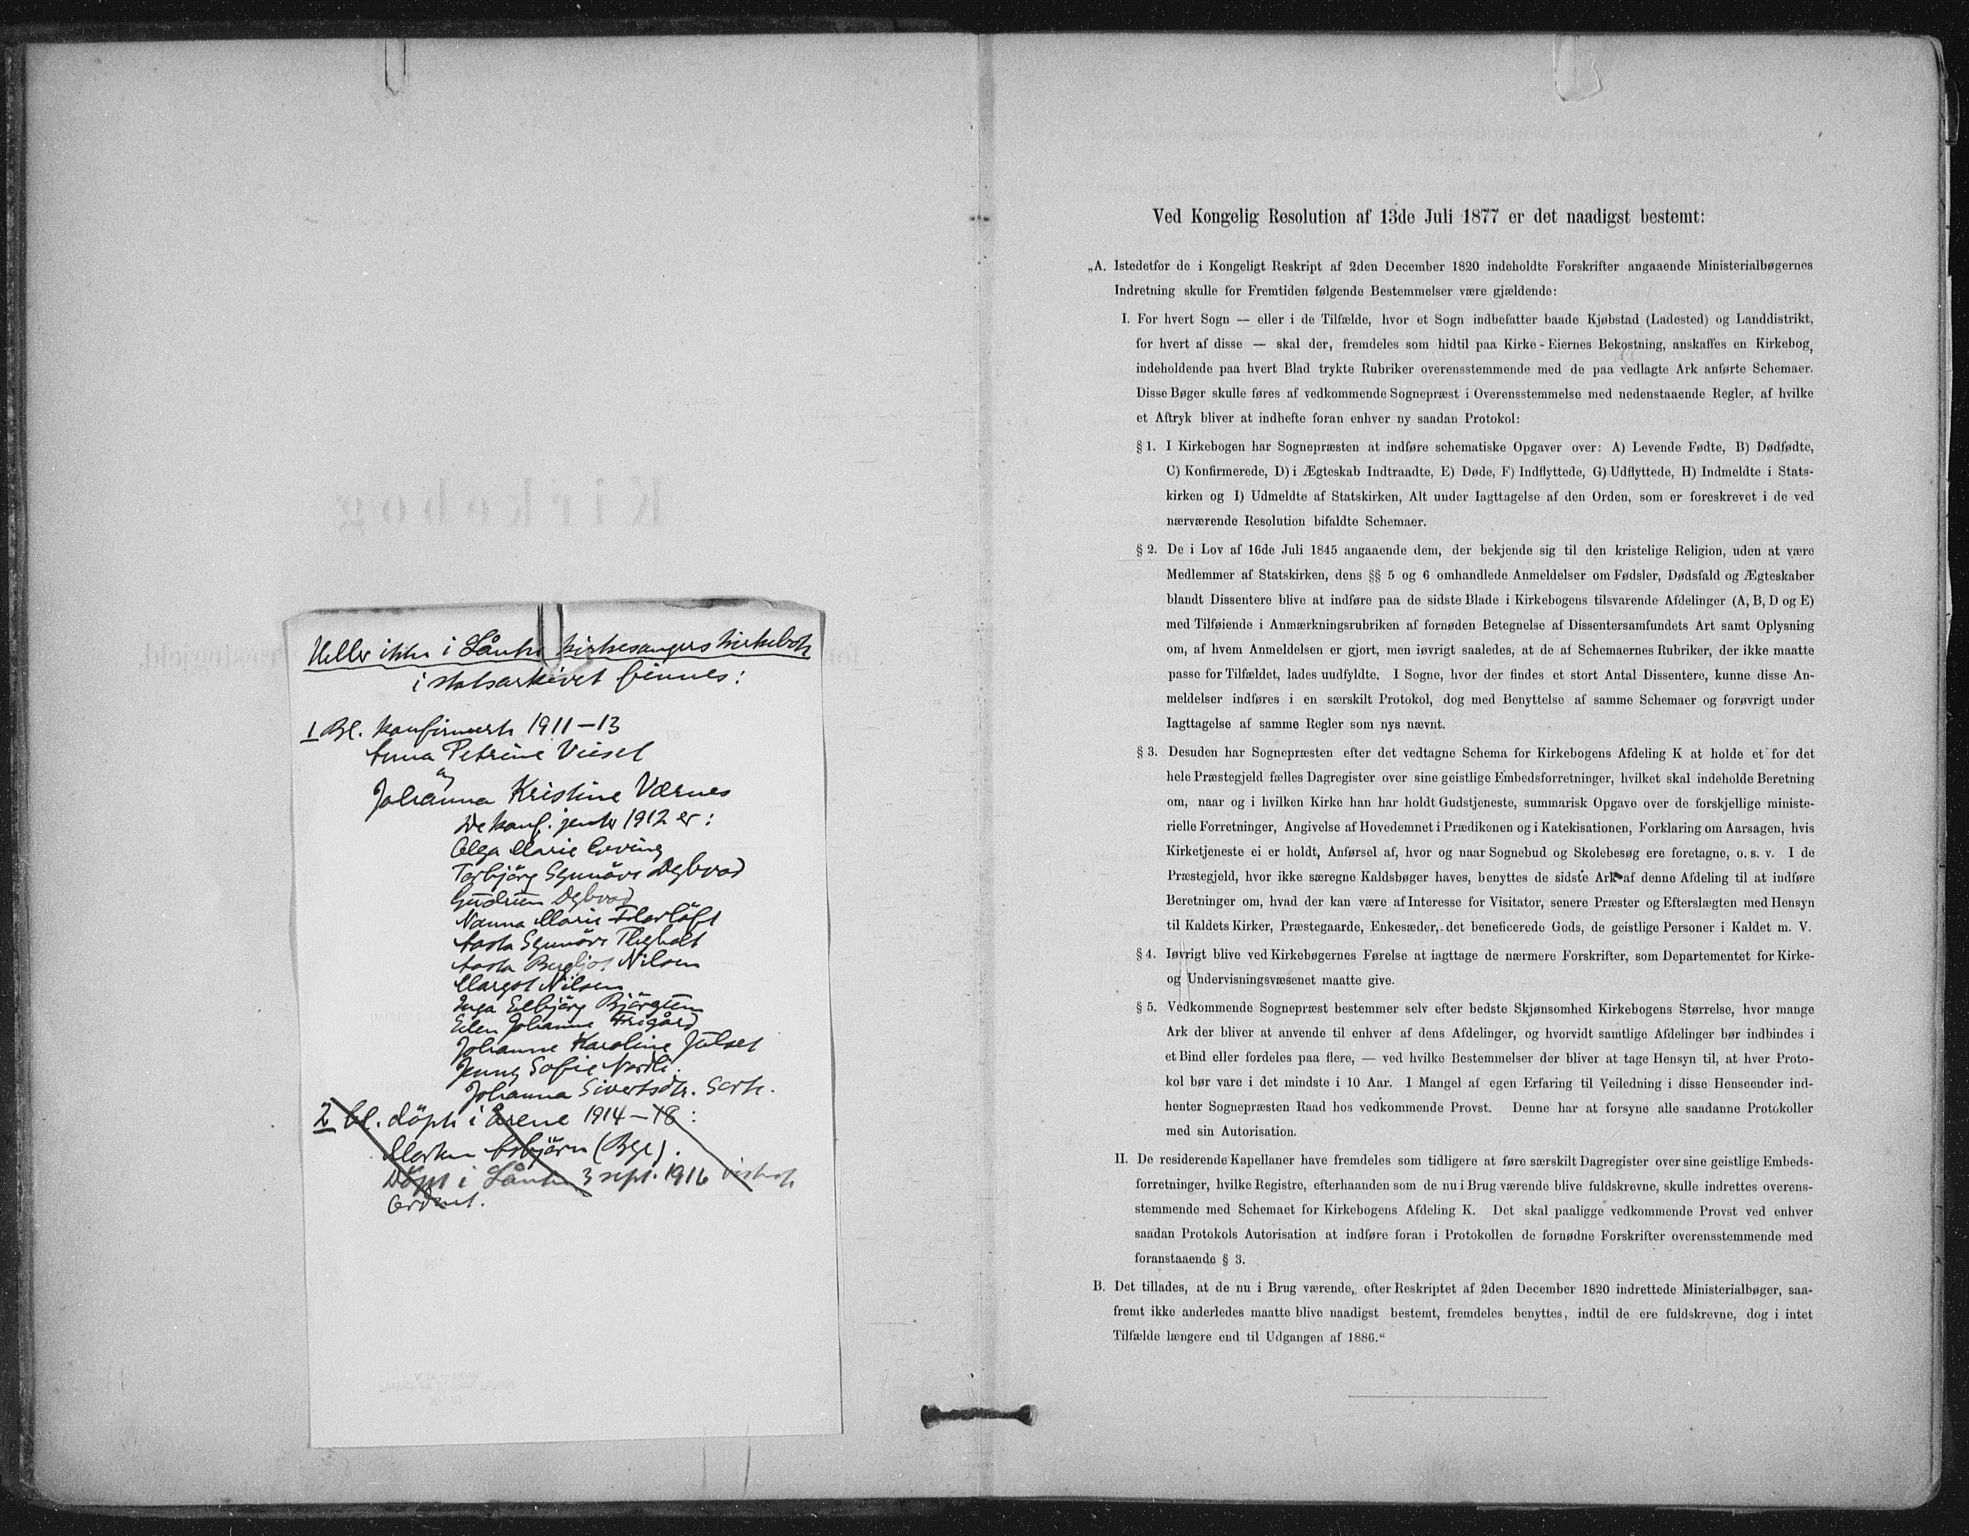 Heller ikke i Lånke kirkesangers kirkebok
i statsarkivet finnes:
1 Bl. konfirmerte 1911-13
Anna Petrine Viset
og
Johanna Kristine Værnes
De konf. jenter 1912 er:
Olga Marie
Torbjörg Synnöve Dybvad
Gudrun Dybvad
Nanna Marie
Aasta Synnöve
Aasta Bergljot Nilsen
Margot Nilsen
Inga Elbjörg
Johanne
Johanne Karoline Julset
Jenny Sofie Nordli.
Johanna Sivertsdtr.
2 bl. döpte i årene 1914-18:
Asbjörn
Döpt i Lånke 3 sept. 1916
Ordnet.
Kirkebog
for
Præstegjeld
Ved Kongelig Resolution af 13de Juli 1877 er det naadigst bestemt:
„A. Istedetfor de i Kongeligt Reskript af 2den December 1820 indeholdte Forskrifter angaaende Ministerialbøgernes
Indretning skulle for Fremtiden følgende Bestemmelser være gjældende:
I. For hvert Sogn — eller i de Tilfælde, hvor et Sogn indbefatter baade Kjøbstad (Ladested) og Landdistrikt,
for hvert af disse — skal der, fremdeles som hidtil paa Kirke-Eiernes Bekostning, anskaffes en Kirkebog,
indeholdende paa hvert Blad trykte Rubriker overensstemmende med de paa vedlagte Ark anførte Schemaer.
Disse Bøger skulle føres af vedkommende Sognepræst i Overensstemmelse med nedenstaaende Regler, af hvilke
et Aftryk bliver at indhefte foran enhver ny saadan Protokol:
§ 1. I Kirkebogen har Sognepræsten at indføre schematiske Opgaver over: A) Levende Fødte, B) Dødfødte,
C) Konfirmerede, D) i Ægteskab Indtraadte, E) Døde, F) Indflyttede, G) Udflyttede, H) Indmeldte i Stats-
kirken og I) Udmeldte af Statskirken, Alt under Iagttagelse af den Orden, som er foreskrevet i de ved
nærværende Resolution bifaldte Schemaer.
§ 2. De i Lov af 16de Juli 1845 angaaende dem, der bekjende sig til den kristelige Religion, uden at være
Medlemmer af Statskirken, dens §§ 5 og 6 omhandlede Anmeldelser om Fødsler, Dødsfald og Ægteskaber
blandt Dissentere blive at indføre paa de sidste Blade i Kirkebogens tilsvarende Afdelinger (A, B, D og E)
med Tilføiende i Anmærkningsrubriken af fornøden Betegnelse af Dissentersamfundets Art samt Oplysning
om, af hvem Anmeldelsen er gjort, men iøvrigt saaledes, at de af Schemaernes Rubriker, der ikke maatte
passe for Tilfældet, lades uudfyldte. I Sogne, hvor der findes et stort Antal Dissentere, kunne disse An-
meldelser indføres i en særskilt Protokol, dog med Benyttelse af samme Schemaer og forøvrigt under
Iagttagelse af samme Regler som nys nævnt.
§ 3. Desuden har Sognepræsten efter det vedtagne Schema for Kirkebogens Afdeling K at holde et for det
hele Præstegjeld fælles Dagregister over sine geistlige Embedsforretninger, hvilket skal indeholde Beretning
om, naar og i hvilken Kirke han har holdt Gudstjeneste, summarisk Opgave over de forskjellige ministe-
rielle Forretninger, Angivelse af Hovedemnet i Prædikenen og i Katekisationen, Forklaring om Aarsagen, hvis
Kirketjeneste ei er holdt, Anførsel af, hvor og naar Sognebud og Skolebesøg ere foretagne, o. s. v. I de
Præstegjeld, hvor ikke særegne Kaldsbøger haves, benyttes de sidste Ark af denne Afdeling til at indføre
Beretninger om, hvad der kan være af Interesse for Visitator, senere Præster og Efterslægten med Hensyn
til Kaldets Kirker, Præstegaarde, Enkesæder, det beneficerede Gods, de geistlige Personer i Kaldet m. V.
§ 4. Iøvrigt blive ved Kirkebøgernes Førelse at iagttage de nærmere Forskrifter, som Departementet for Kirke-
og Undervisningsvæsenet maatte give.
§ 5. Vedkommende Sognepræst bestemmer selv efter bedste Skjønsomhed Kirkebogens Størrelse, hvor mange
Ark der bliver at anvende til enhver af dens Afdelinger, og hvorvidt samtlige Afdelinger bør indbindes i
et Bind eller fordeles paa flere, — ved hvilke Bestemmelser der bliver at tage Hensyn til, at hver Proto-
kol bør vare i det mindste i 10 Aar. I Mangel af egen Erfaring til Veiledning i disse Henseender ind-
henter Sognepræsten Raad hos vedkommende Provst. Denne har at forsyne alle saadanne Protokoller
med sin Autorisation.
II. De residerende Kapellaner have fremdeles som tidligere at føre særskilt Dagregister over sine geistlige Embeds-
forretninger, hvilke Registre, efterhaanden som de nu i Brug værende blive fuldskrevne, skulle indrettes overens-
stemmende med Schemaet for Kirkebogens Afdeling K. Det skal paaligge vedkommende Provst ved enhver
saadan Protokols Autorisation at indføre foran i Protokollen de fornødne Forskrifter overensstemmende med
foranstaaende § 3.
B. Det tillades, at de nu i Brug værende, efter Reskriptet af 2den December 1820 indrettede Ministerialbøger, saa-
fremt ikke anderledes maatte blive naadigst bestemt, fremdeles benyttes, indtil de ere fuldskrevne, dog i intet
Tilfælde længere end til Udgangen af 1886.“